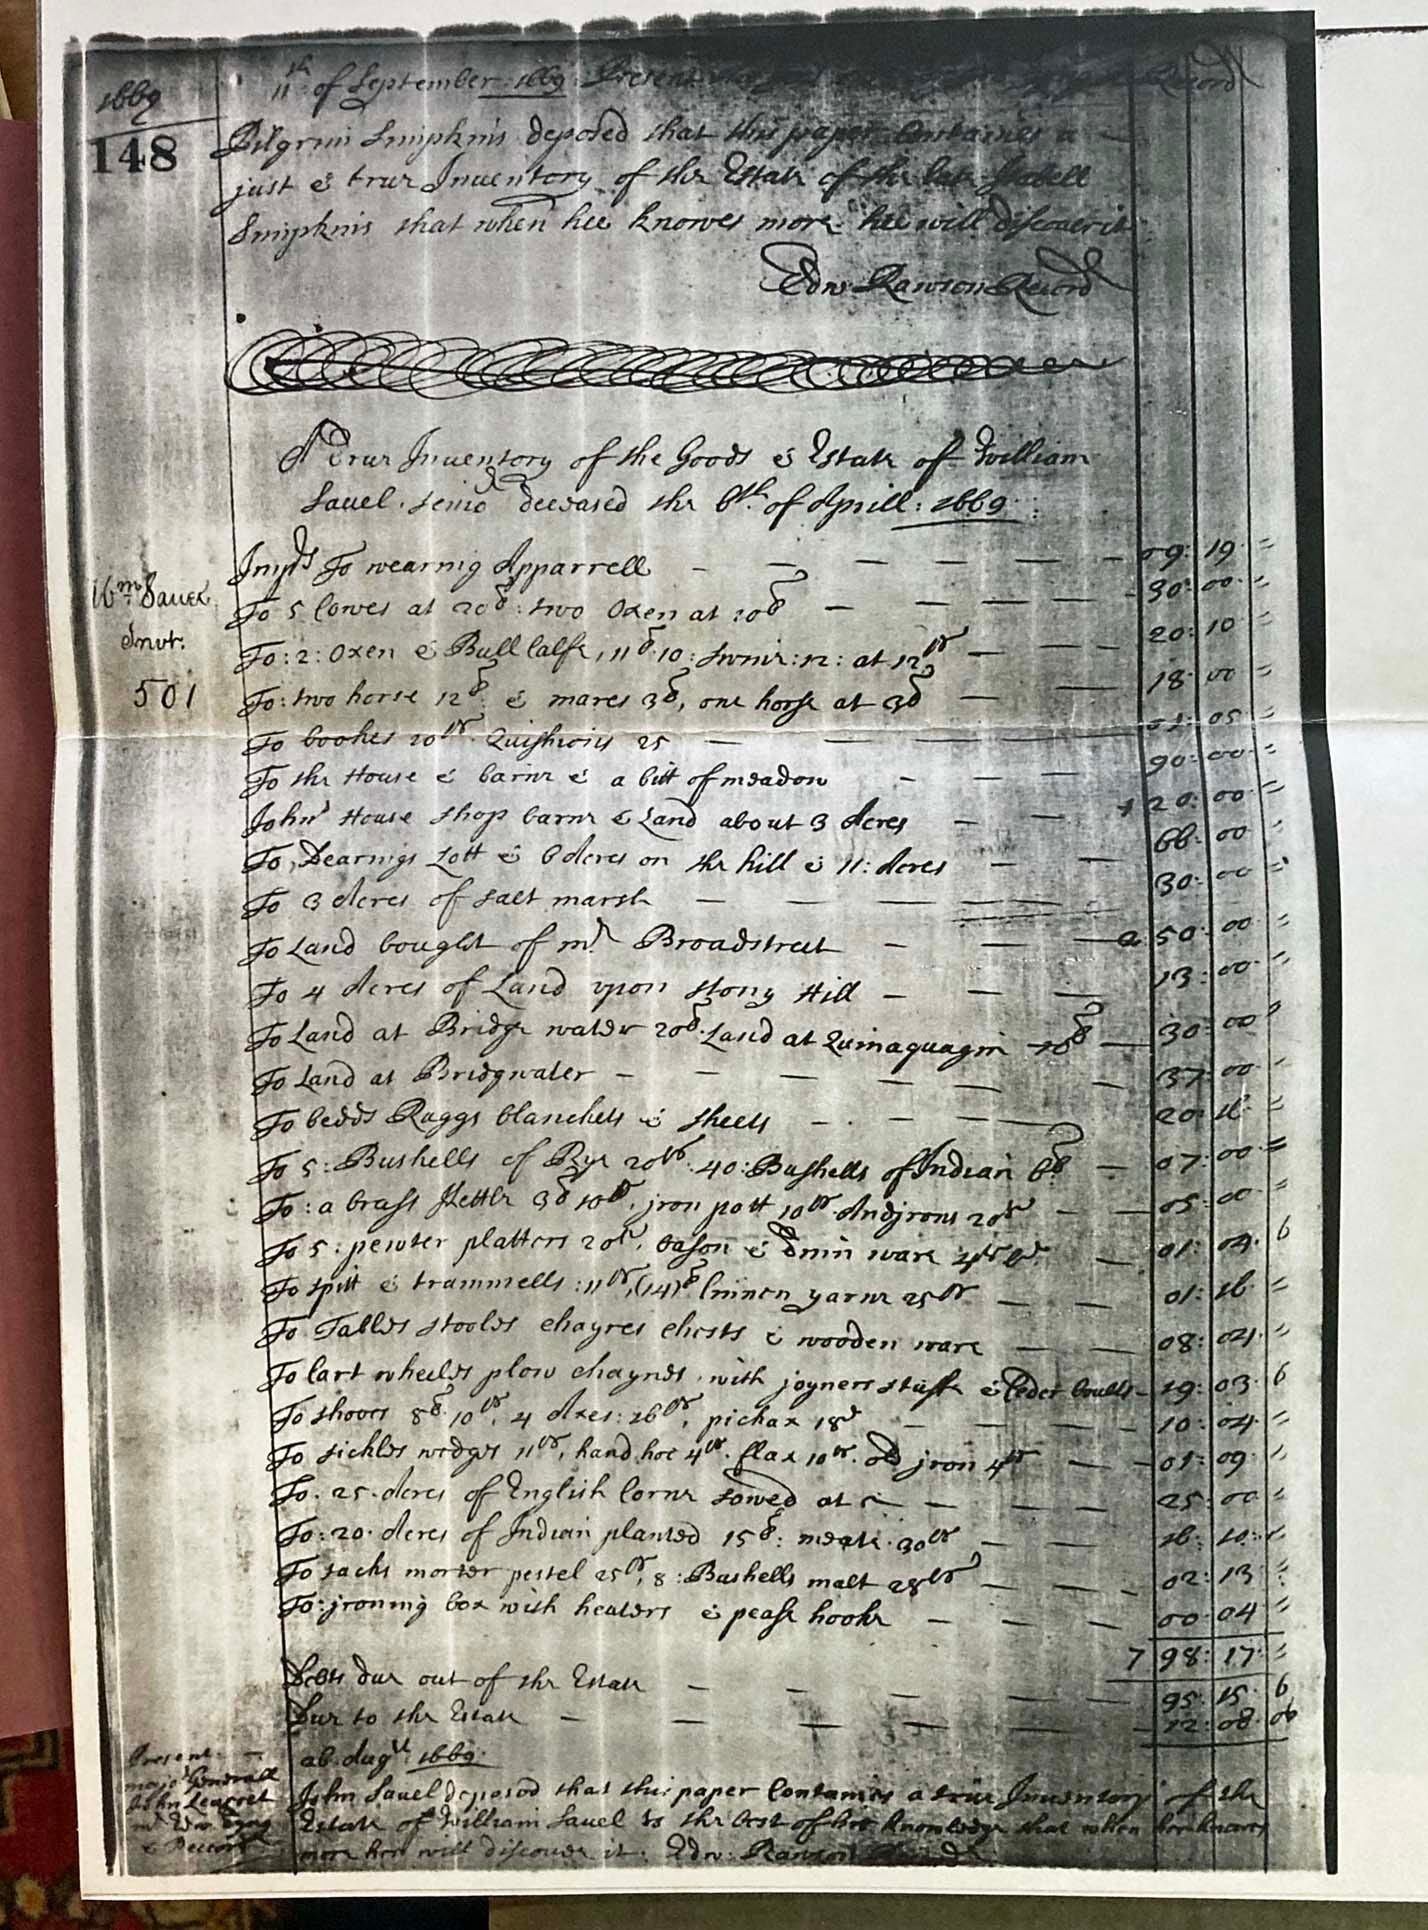 1669
148
11th of September 1669 Present
Pilgrim Simpkins deposed that this paper Containes a
just & true Inventory of the Estate of the late Isabell
Simpkins that when hee knowes more hee will discouer it
Edw: Rawson Record
A True Inuentory of the Goods & Estate of William
Sauel senio deceased the 6th of Aprill: 1669
Wm Sauel
Invt.
501
Imps To wearing Apparrell 09: 19 "
To 5 Cowes at 20£: two Oxen at 10£ 30: 00 "
To: 2: Oxen & Bull Calfe, 11£ 10: swine: 12: at 12s 20: 10 "
To: two horse 12£ & mares 3£, one horse at 3£ 18: 00 "
To bookes 20s Quishions 25 01: 05 "
To the House & barne & a bitt of meadow 90: 00 "
John's House shop barne & Land about 3 Acres 120: 00 "
To Dearings Lott & 6 Acres on the hill & 11: Acres 66: 00 "
To 3 Acres of salt marsh 30: 00 "
To Land bought of mr Broadstreet 250: 00 "
To 4 Acres of Land vpon stony Hill 13: 00 "
To Land at Bridge water 20£ Land at Quinaquagin 10£ 30: 00 "
To Land at Bridgwater 37: 00 "
To bedds Raggs blanckets & sheets 20: 16 "
To 5: Bushells of Rye 20s 40: Bushells of Indian 6£ 07: 00 "
To: a brass Kettle 3£ 10s, jron pott 10s Andjrons 20s 05: 00 "
To 5: pewter platters 20s, bason & Tinn ware 4s 6d 01: 04: 6
To spitt & trammells: 11s, (14)£ linnen yarne 25s 01: 16 "
To Tables stooles chayres chests & wooden ware 08: 04 "
To Cart wheeles plow chaynes with joyners stuffe & Ceder boults 19: 03: 6
To shooes 8£ 10s, 4 Axes: 16s, pickax 18d 10: 04 "
To sickles wedges 11s, hand hoe 4s flax 10s old jron 4s 01: 09 "
To 25 Acres of English Corne sowed at 25: 00 "
To: 20 Acres of Indian planted 15£: meate 30s 16: 10 "
To sacks morter pestel 25s, 8: Bushells malt 28s 02: 13 "
To: jroning box with heaters & pease hooke 00: 04 "
798: 17 "
Debts due out of the Estate 95: 15: 6
Due to the Estate 12: 08: 06
Present
majo Generall
John Leueret
mr Edw Tyng
& Record
Augt 1669
John Sauel deposed that this paper Containes a true Inuentory of the
Estate of William Sauel to the best of his knowledge that when hee knowes
more hee will discouer it Edw: Rawson Record